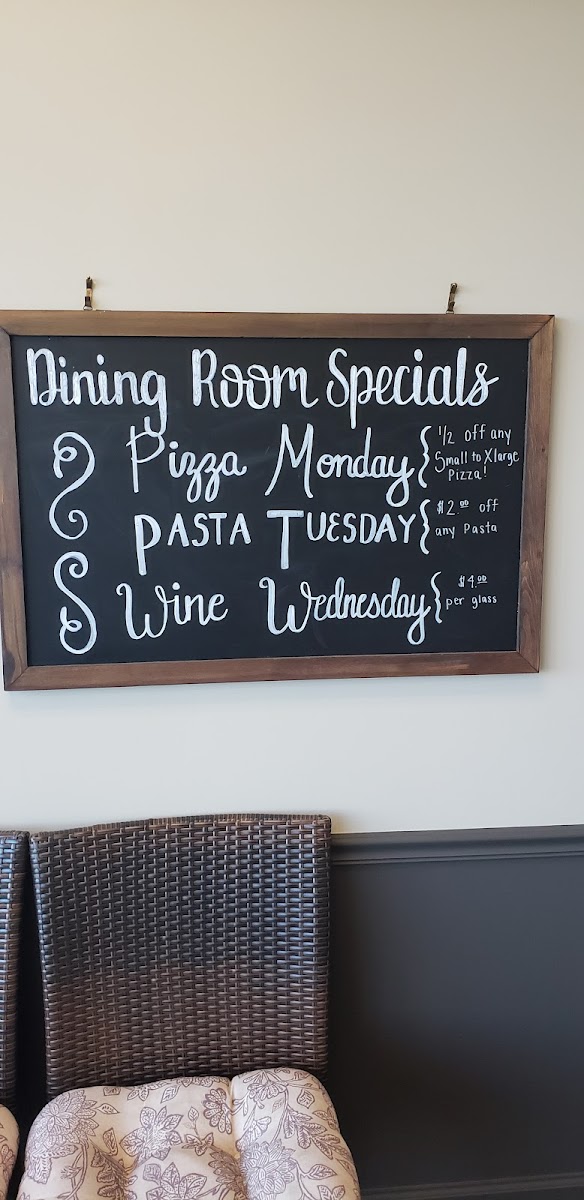 Dining Room Specials
Pizza Monday { 1/2 off any
Small to Xlarge
Pizza!
PASTA TUESDAY { $2.00 off
any Pasta
Wine Wednesday { $4.00
per glass